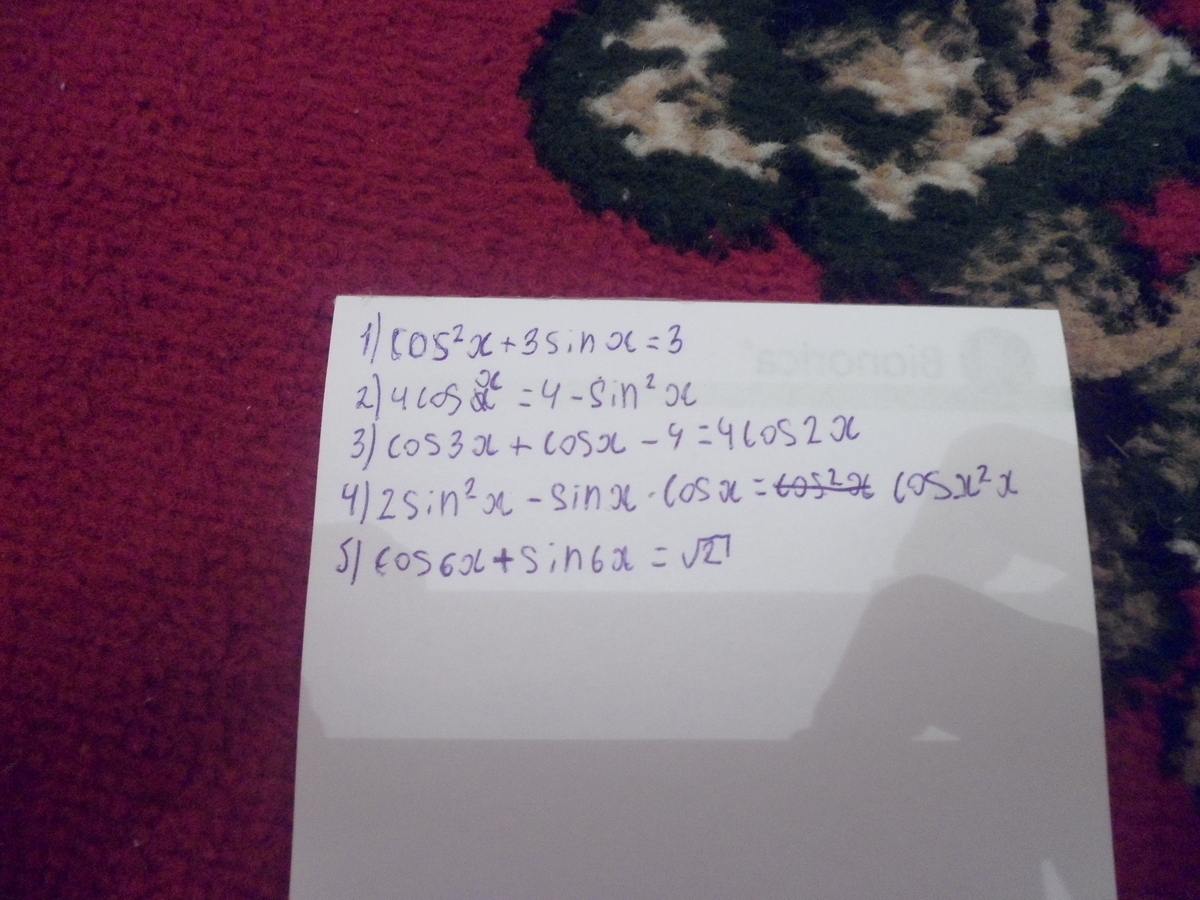 1) cos²x + 3 sin x = 3
2) 4 cos x = 4 - sin²x
3) cos3x + cosx - 4 = 4cos2x
4) 2sin²x - sinx · cosx = cos²x cosx²x
5) cos6x + sin6x = √2
Bionorica